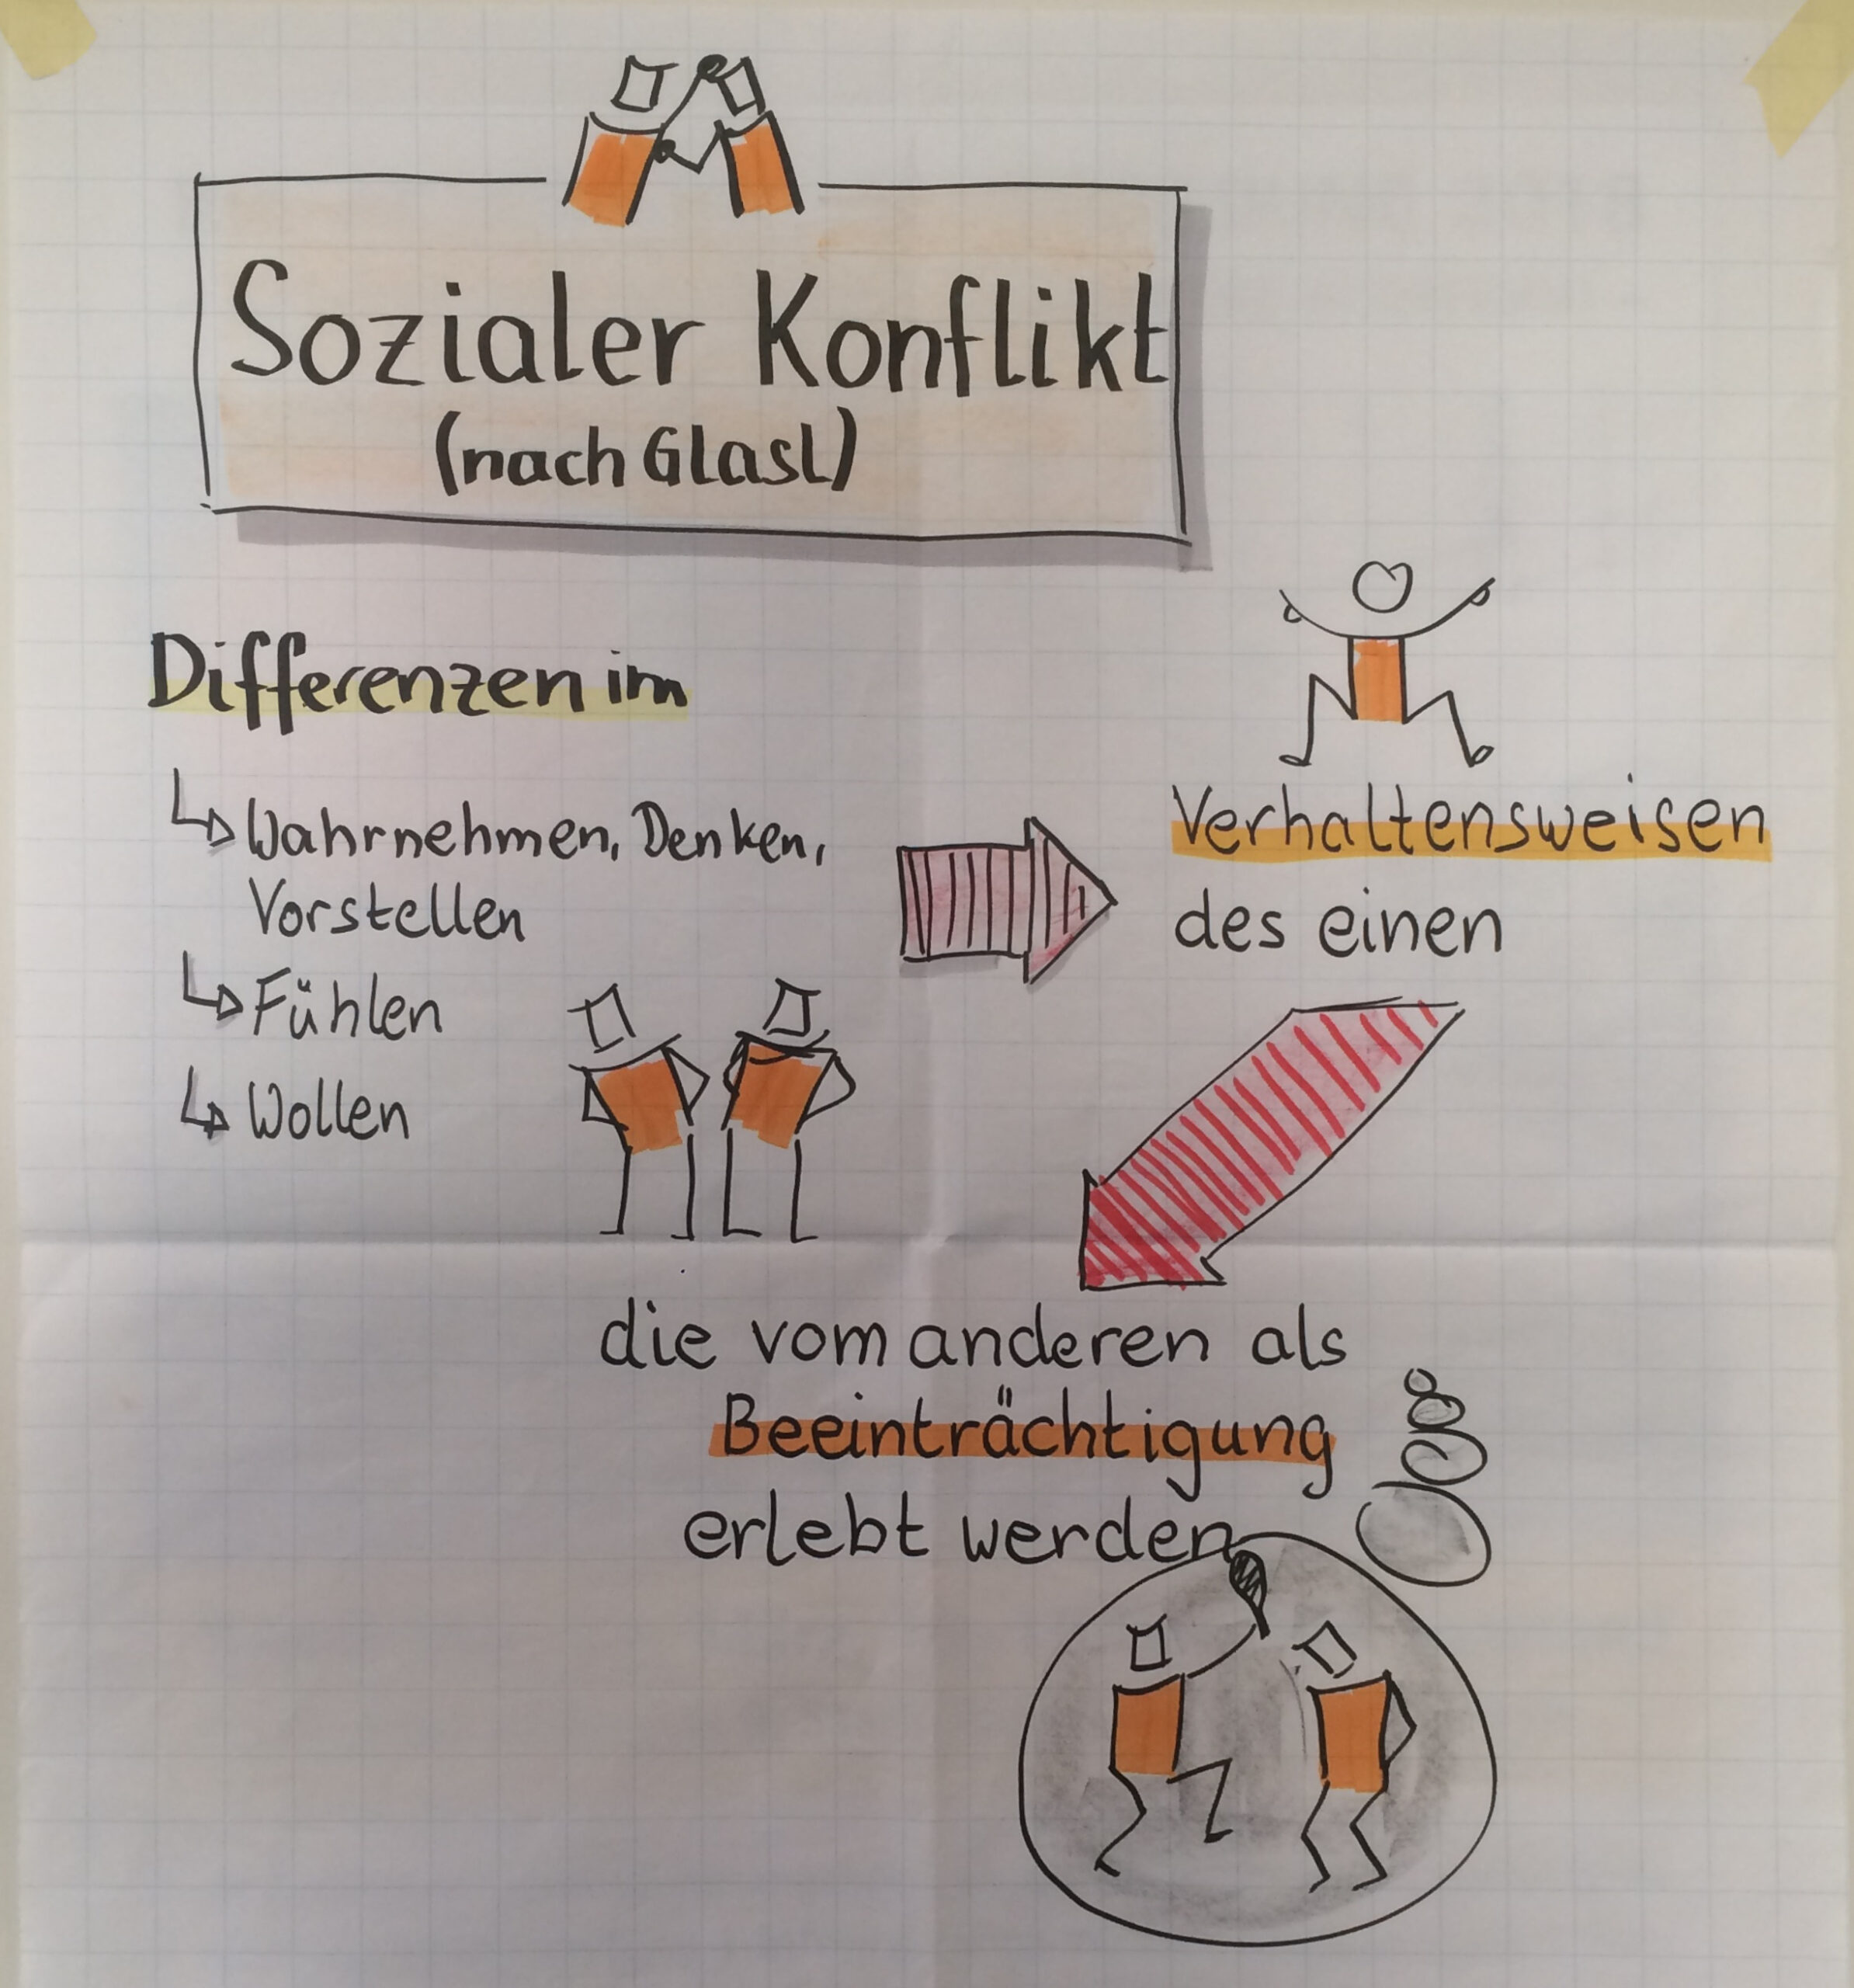 Sozialer Konflikt
(nach Glasl)
Differenzen im
Wahrnehmen, Denken,
Vorstellen
Fühlen
Wollen
Verhaltensweisen
des einen
die vom anderen als
Beeinträchtigung
erlebt werden